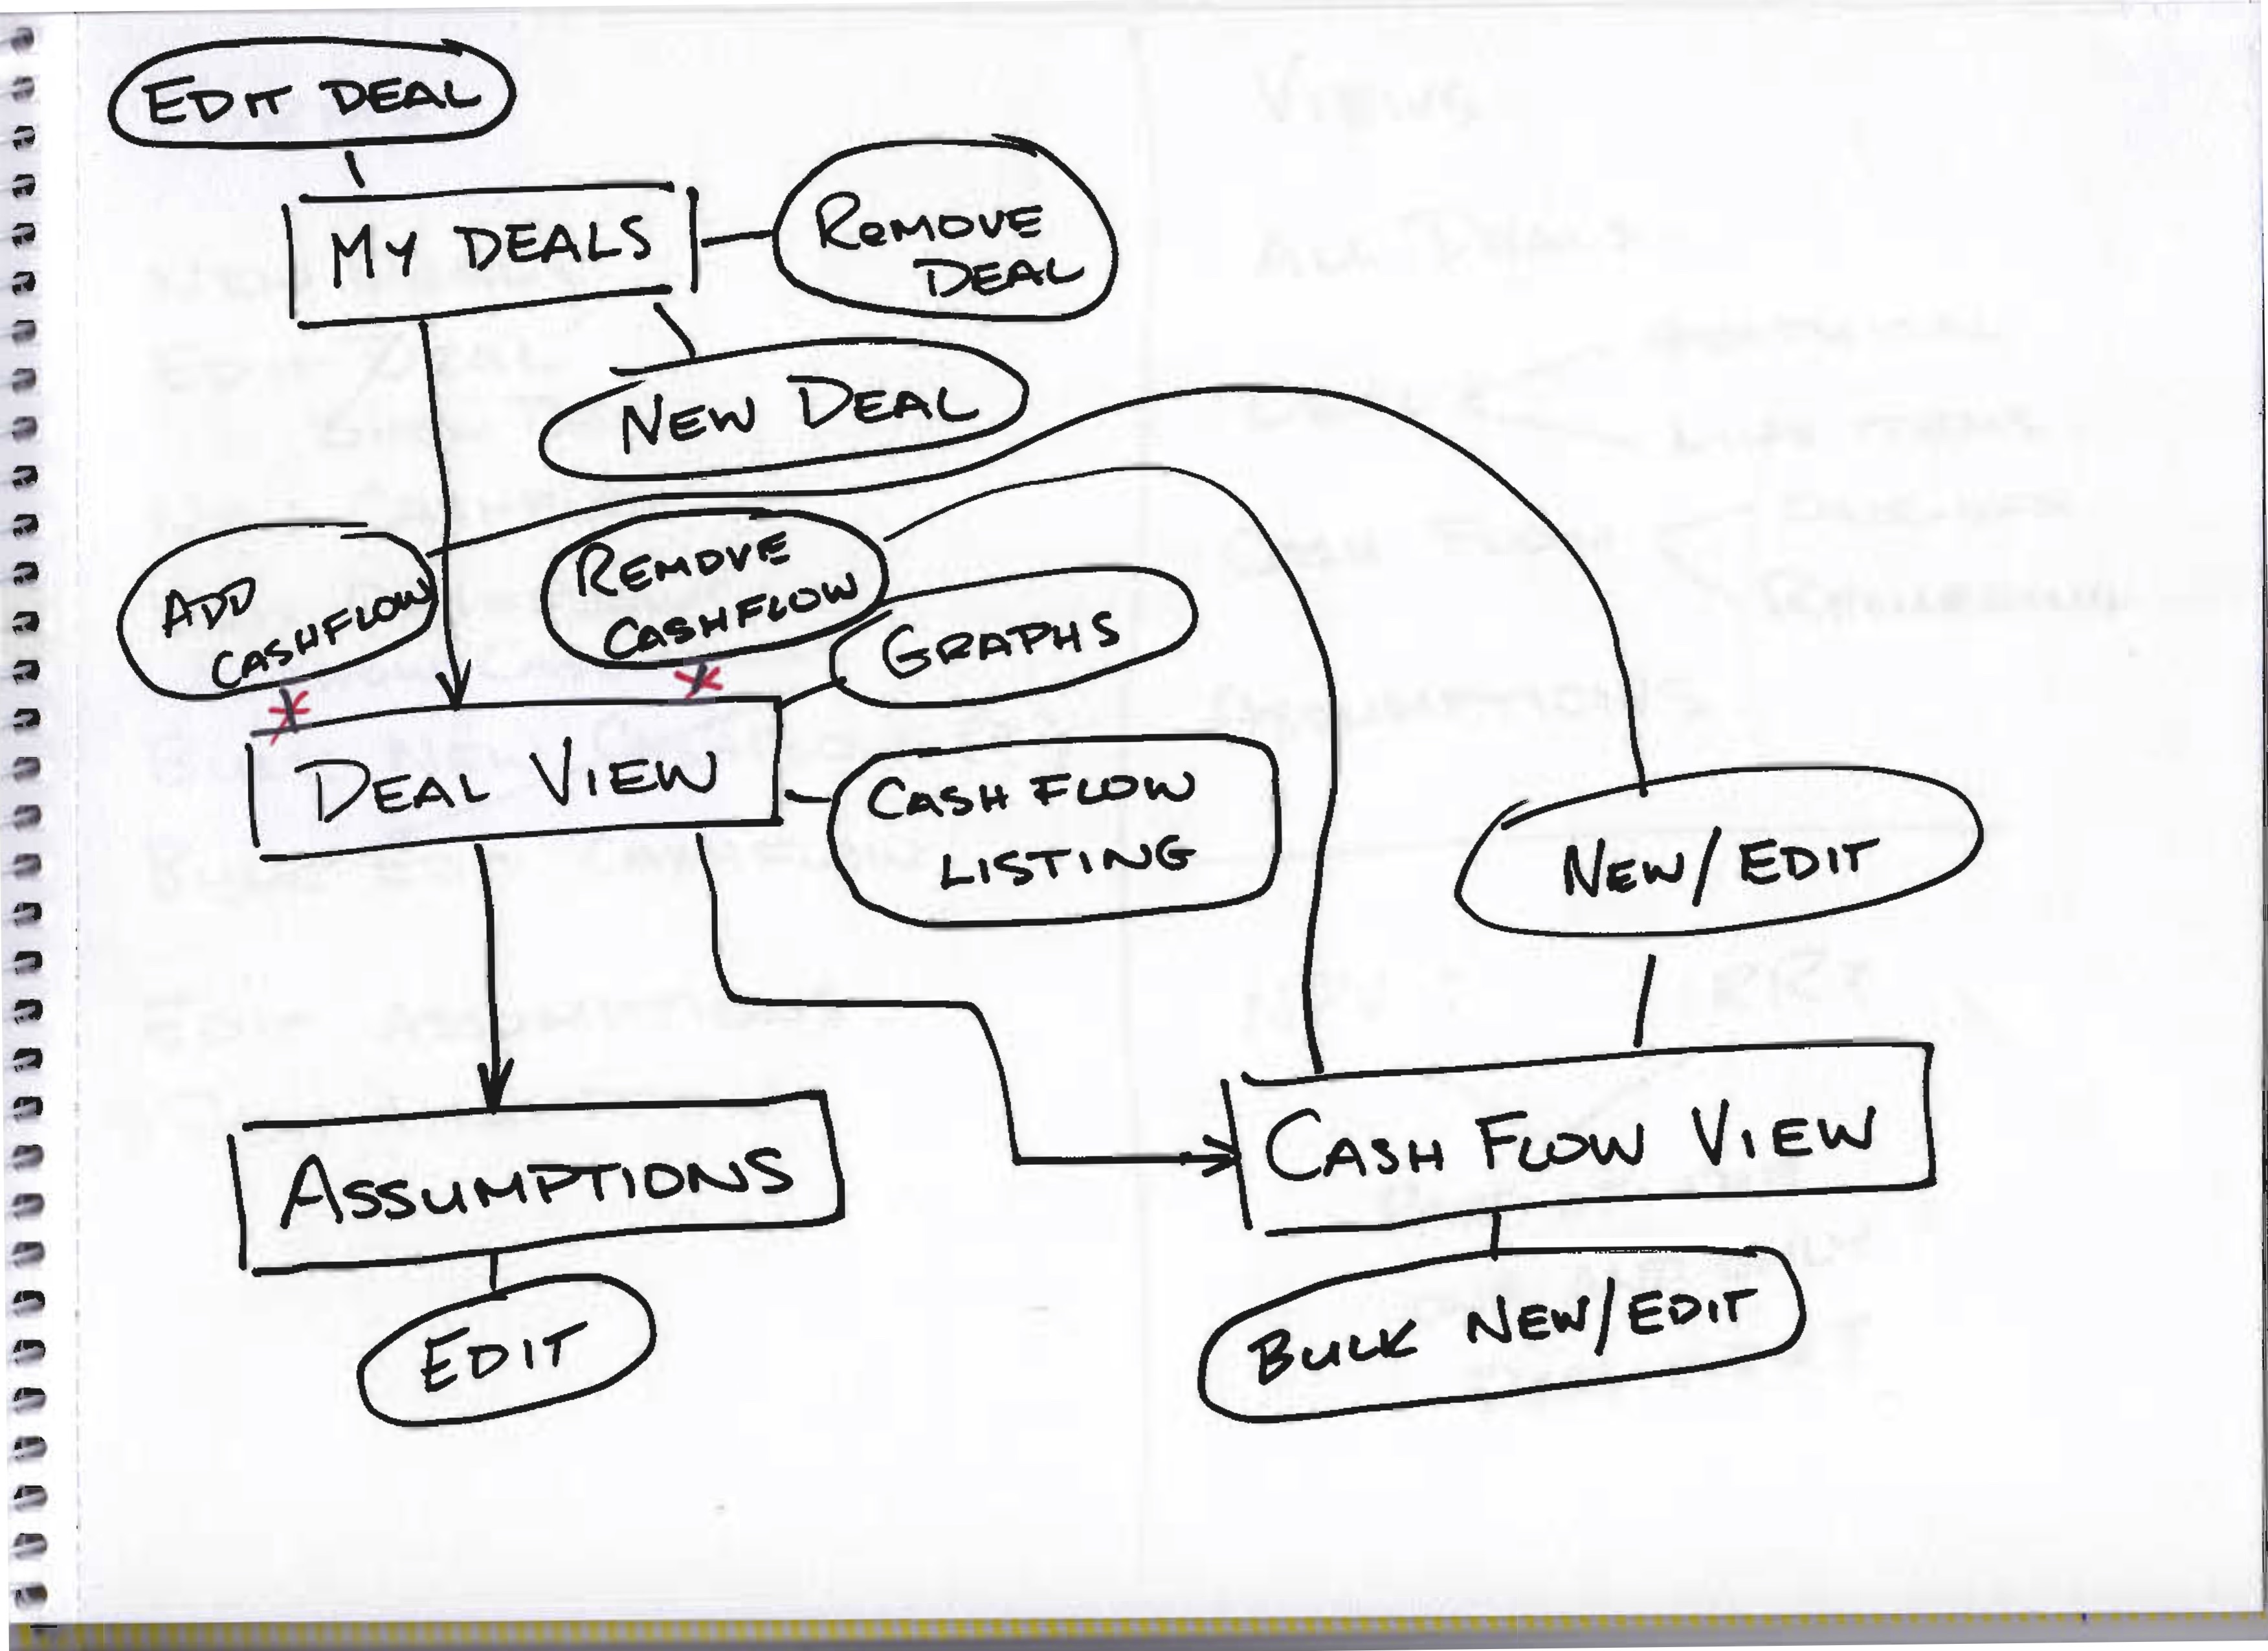 EDIT DEAL
MY DEALS
REMOVE
DEAL
NEW DEAL
ADD
CASHFLOW
REMOVE
CASHFLOW
GRAPHS
DEAL VIEW
CASH FLOW
LISTING
NEW/EDIT
ASSUMPTIONS
CASH FLOW VIEW
EDIT
BULK NEW/EDIT
VIEWS